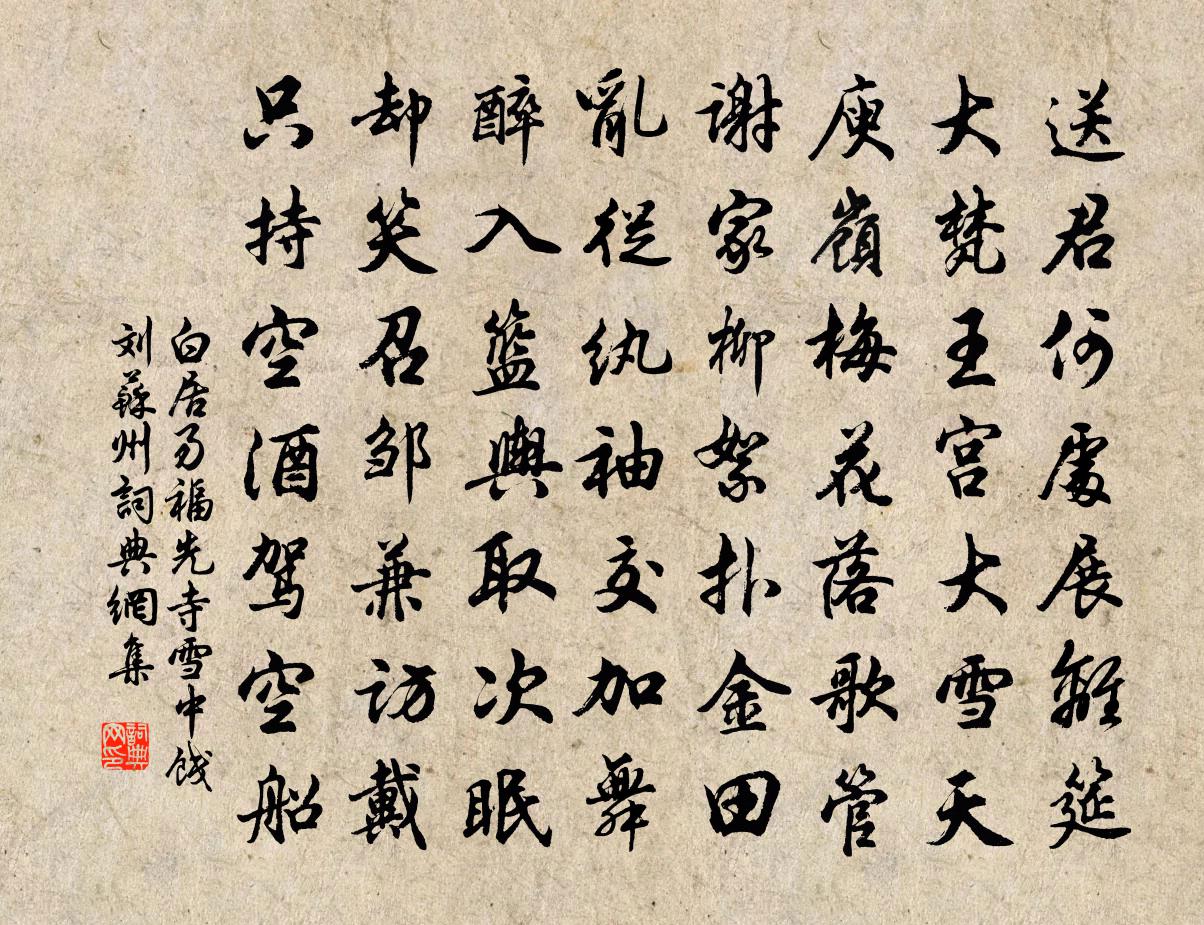 送君何處展離筵
大梵王宮大雪天
庾嶺梅花落歌管
謝家柳絮扑金田
亂從紈袖交加舞
醉入籃輿取次眠
却笑召邹兼訪戴
只持空酒驾空船
白居易福先寺雪中饯
刘蘇州詞典網集
詞典网印